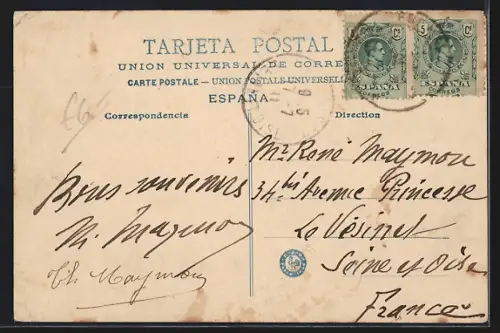 TARJETA POSTAL
UNION UNIVERSAL DE CORRE
CARTE POSTALE – UNION POSTALE UNIVERSELLE
ESPAÑA
Correspondencia
Direction
5 Cs
ESPAÑA
Cs
ESPAÑA
£6
Bons souvenirs
M. Maymou
Th Maymou
Mr René Maymou
34 bis Avenue Princesse
Le Vésinet
Seine et Oise
France